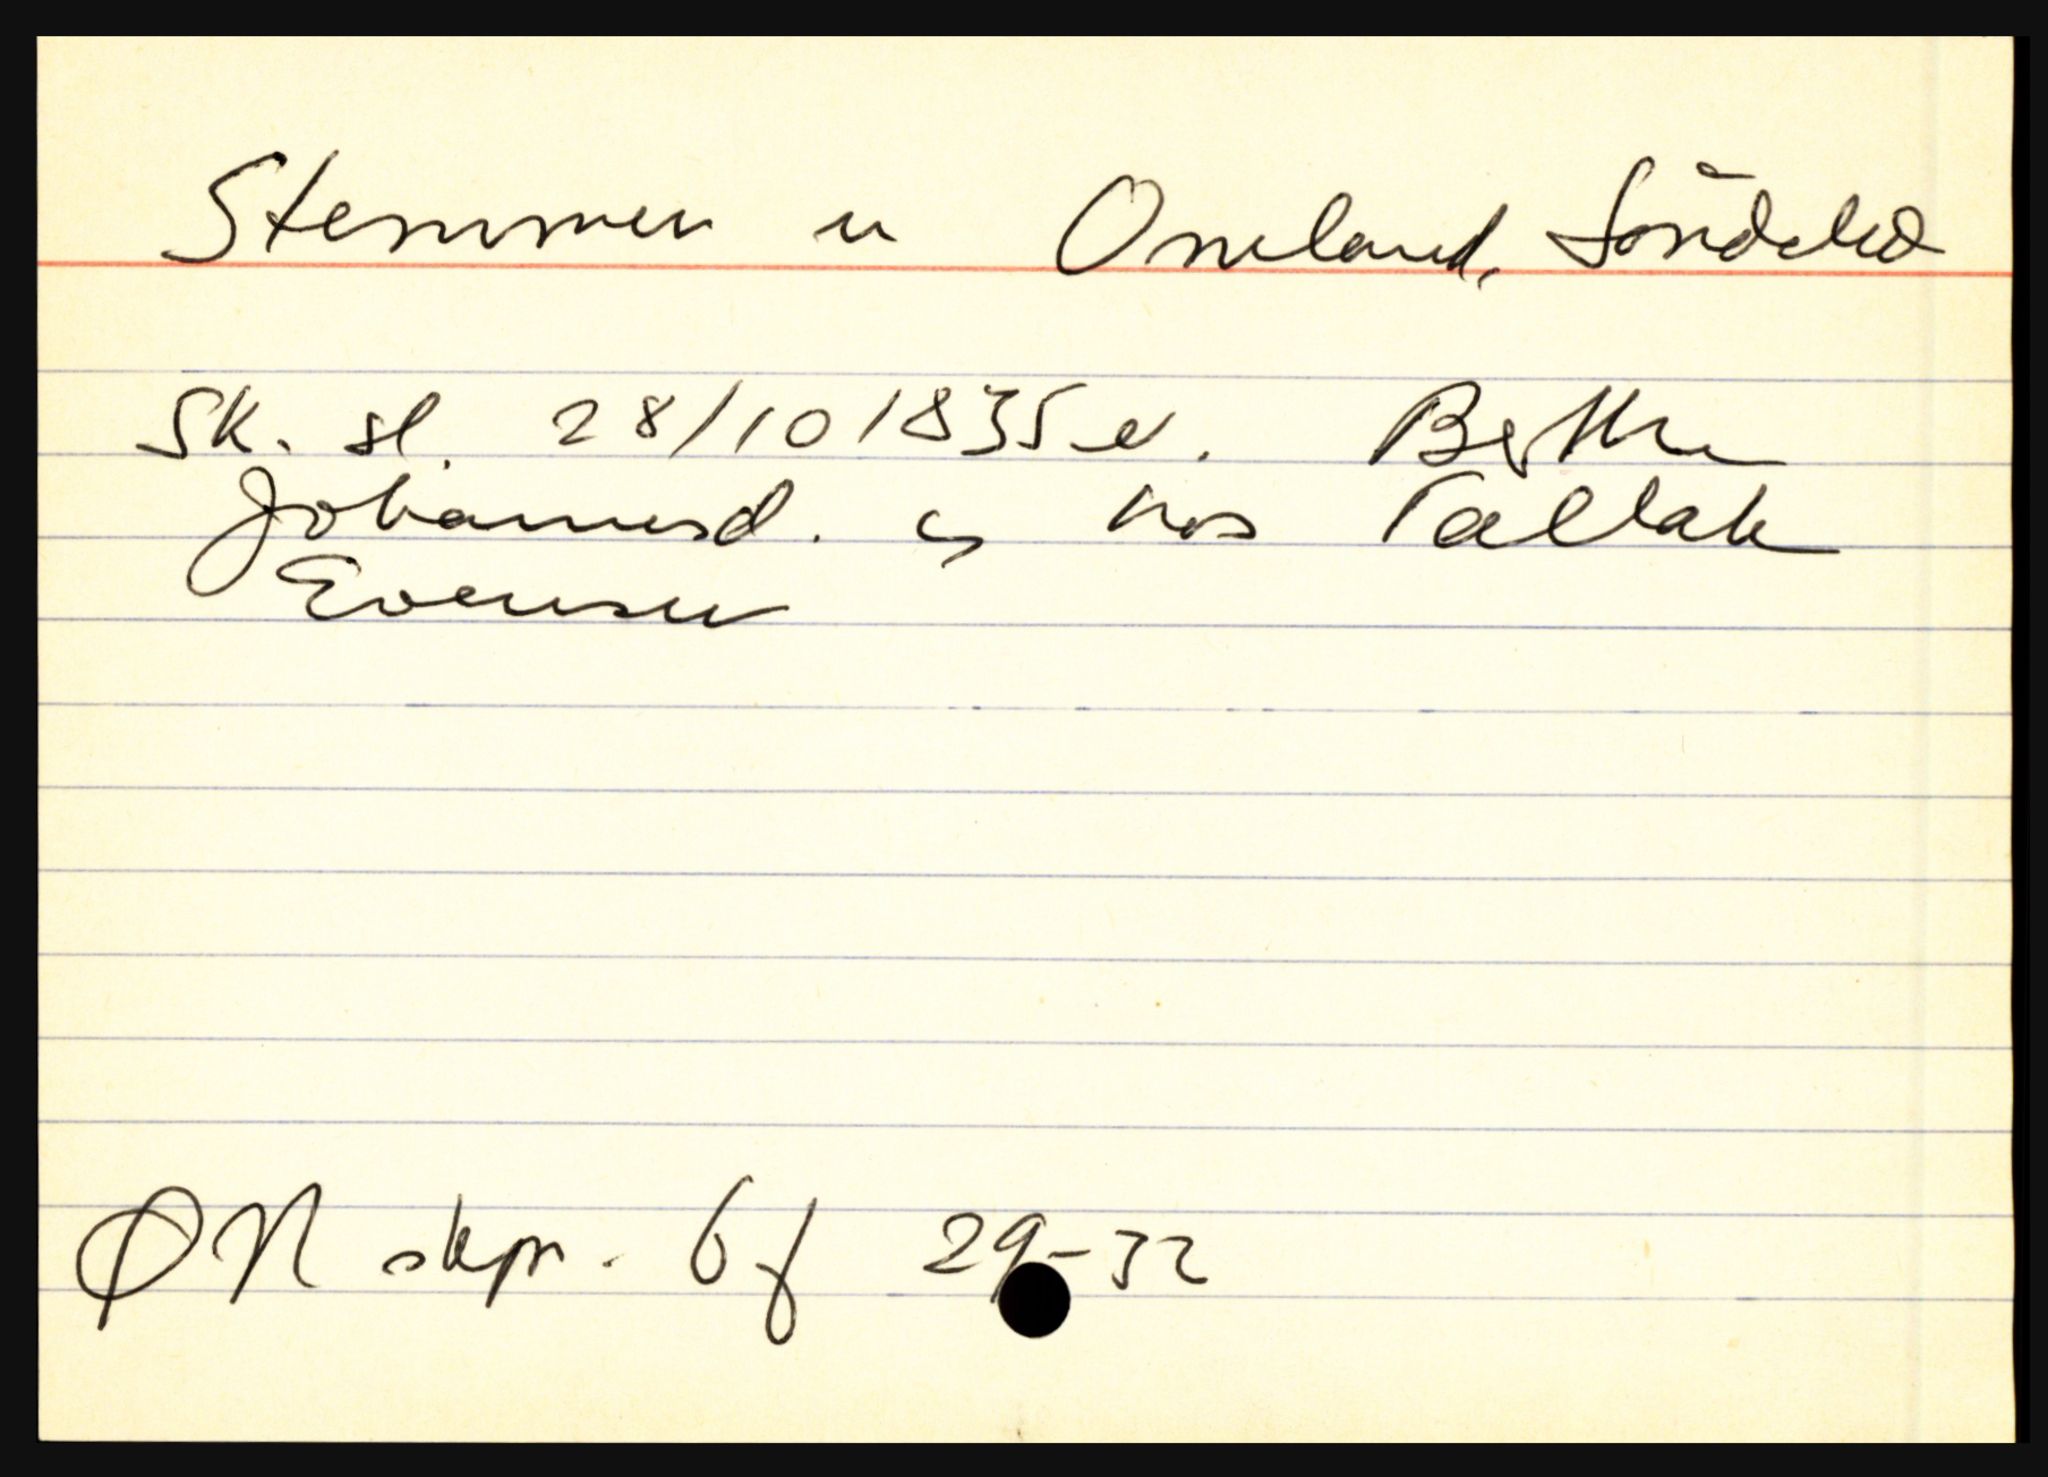 Stemmen u Omland, Söndeled
Sk. sl. 28/10 1835 e. Berthe
Johannesd. g hos Tallak
Evensen
ØN skpr. 6 f 29-32